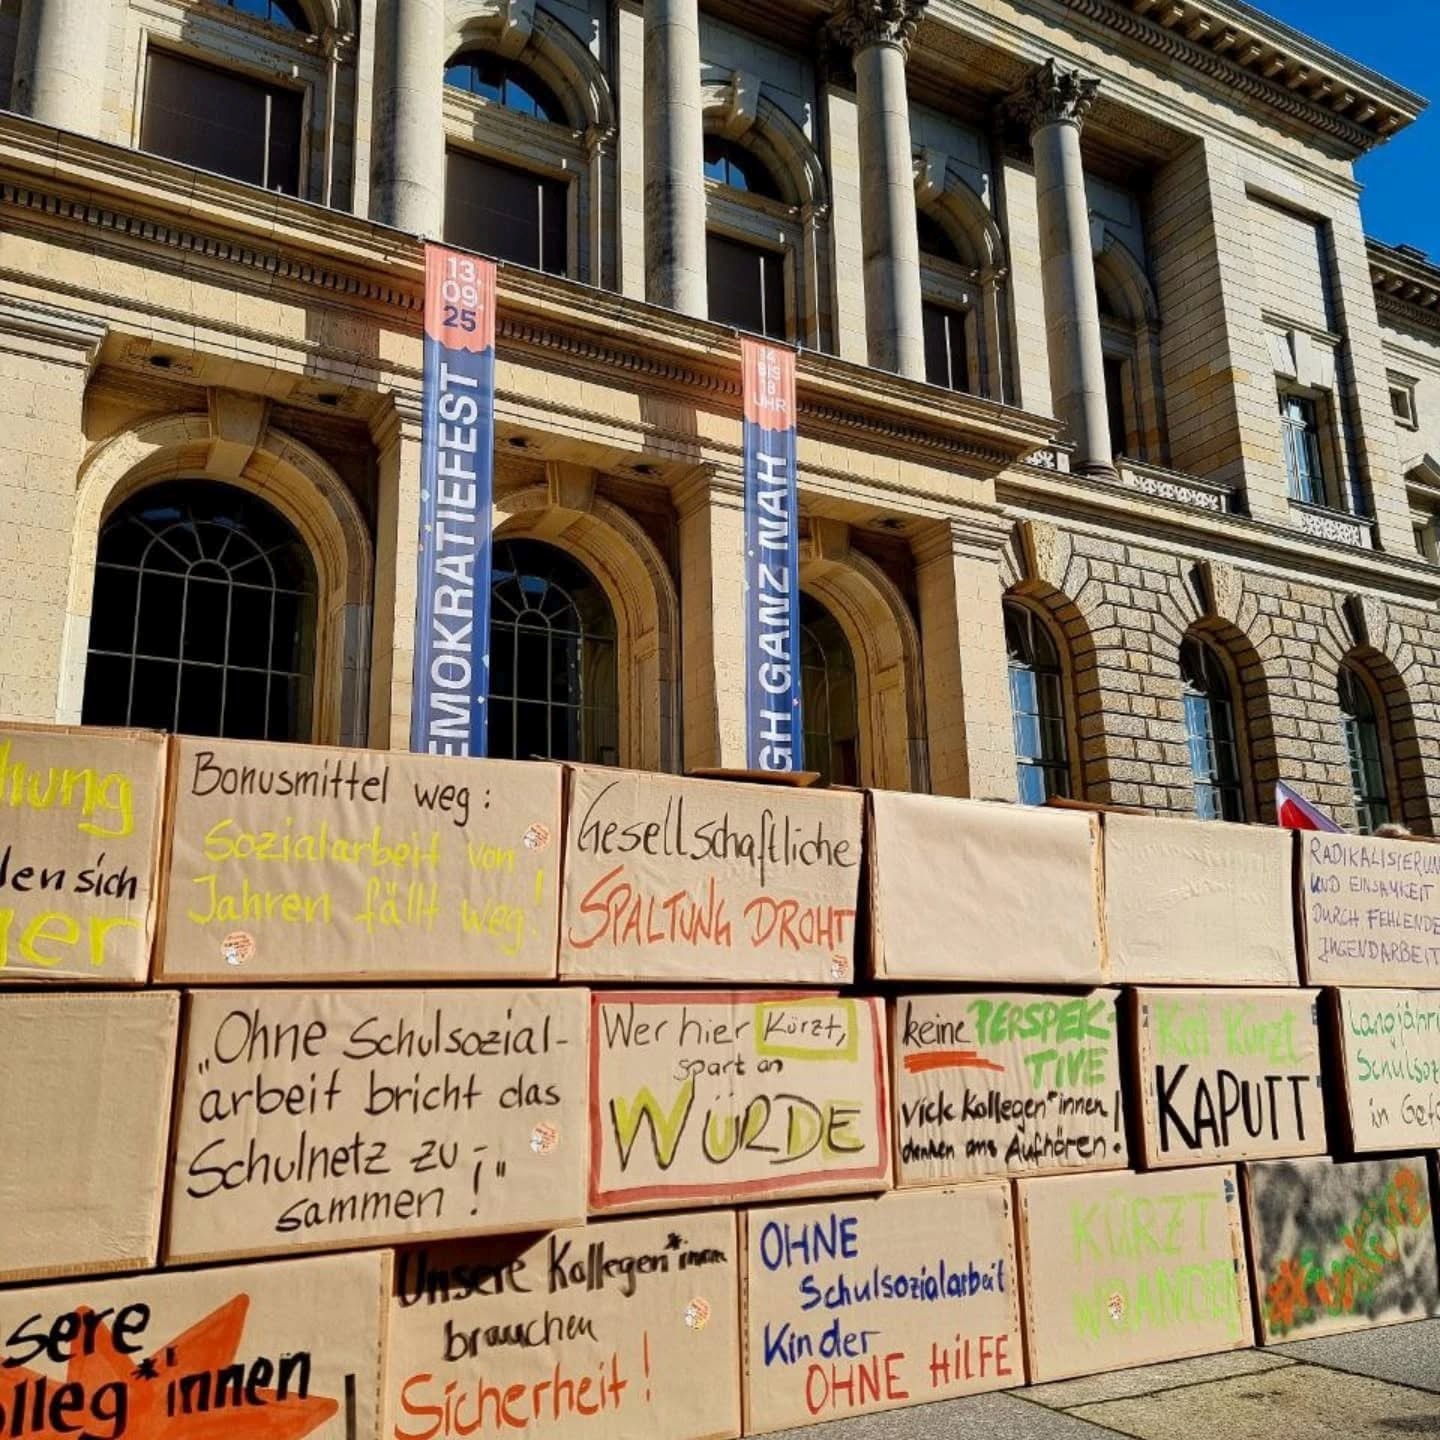 13.
09.
25
EMOKRATIEFEST
14
BIS
18
UHR
GH GANZ NAH
hung
den sich
er
Bonusmittel weg:
Sozialarbeit von
Jahren fällt weg!
Gesellschaftliche
SPALTUNG DROHT
RADIKALISIERUN
UND EINSAMKEIT
DURCH FEHLENDE
JUGENDARBEIT
„Ohne Schulsozial-
arbeit bricht das
Schulnetz zu-
sammen!"
Wer hier Kürzt,
spart an
WÜRDE
keine PERSPEK-
TIVE
viele Kollegen*innen
denken ans Aufhören!
Kai Kürzt
KAPUTT
Langjähri
Schulsoz
in Gefa
sere
olleg*innen
Unsere Kollegen*innen
brauchen
Sicherheit!
OHNE
Schulsozialarbeit
Kinder
OHNE HILFE
KÜRZT
WOANDERS